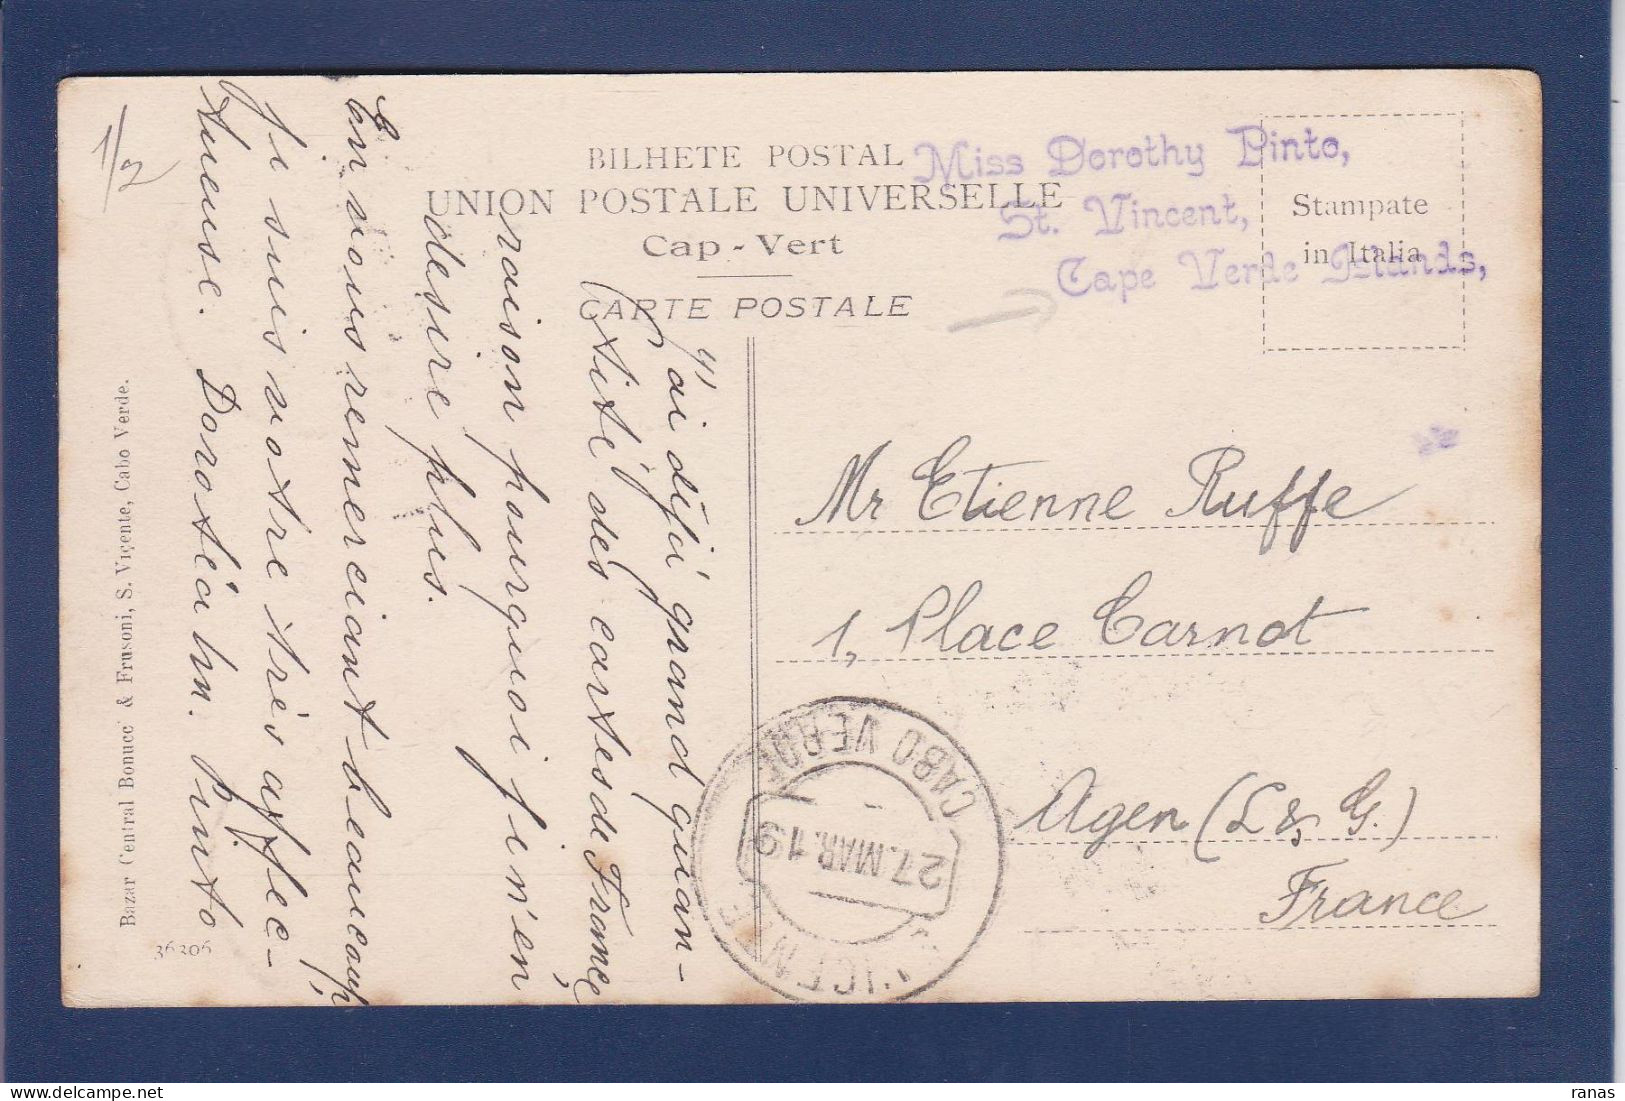 1/2
BILHETE POSTAL
UNION POSTALE UNIVERSELLE
Cap - Vert
CARTE POSTALE
Miss Dorothy Pinto,
St. Vincent,
Cape Verde Islands,
Stampate
in Italia
J'ai déjà grand quan-
tité des cartes de France,
raison pourquoi j'n'en
desire plus.
En vous remerciant beaucoup,
je suis votre très affec-
tueuse. Dorotéa
Pinto
Mr Etienne Ruffe
1, Place Carnot
Agen (L & G.)
France
CABO VERDE
27.MAR.19
S. VICENTE
Bazar Central Bonucc' & Frusoni, S. Viçente, Cabo Verde.
36206
ranas